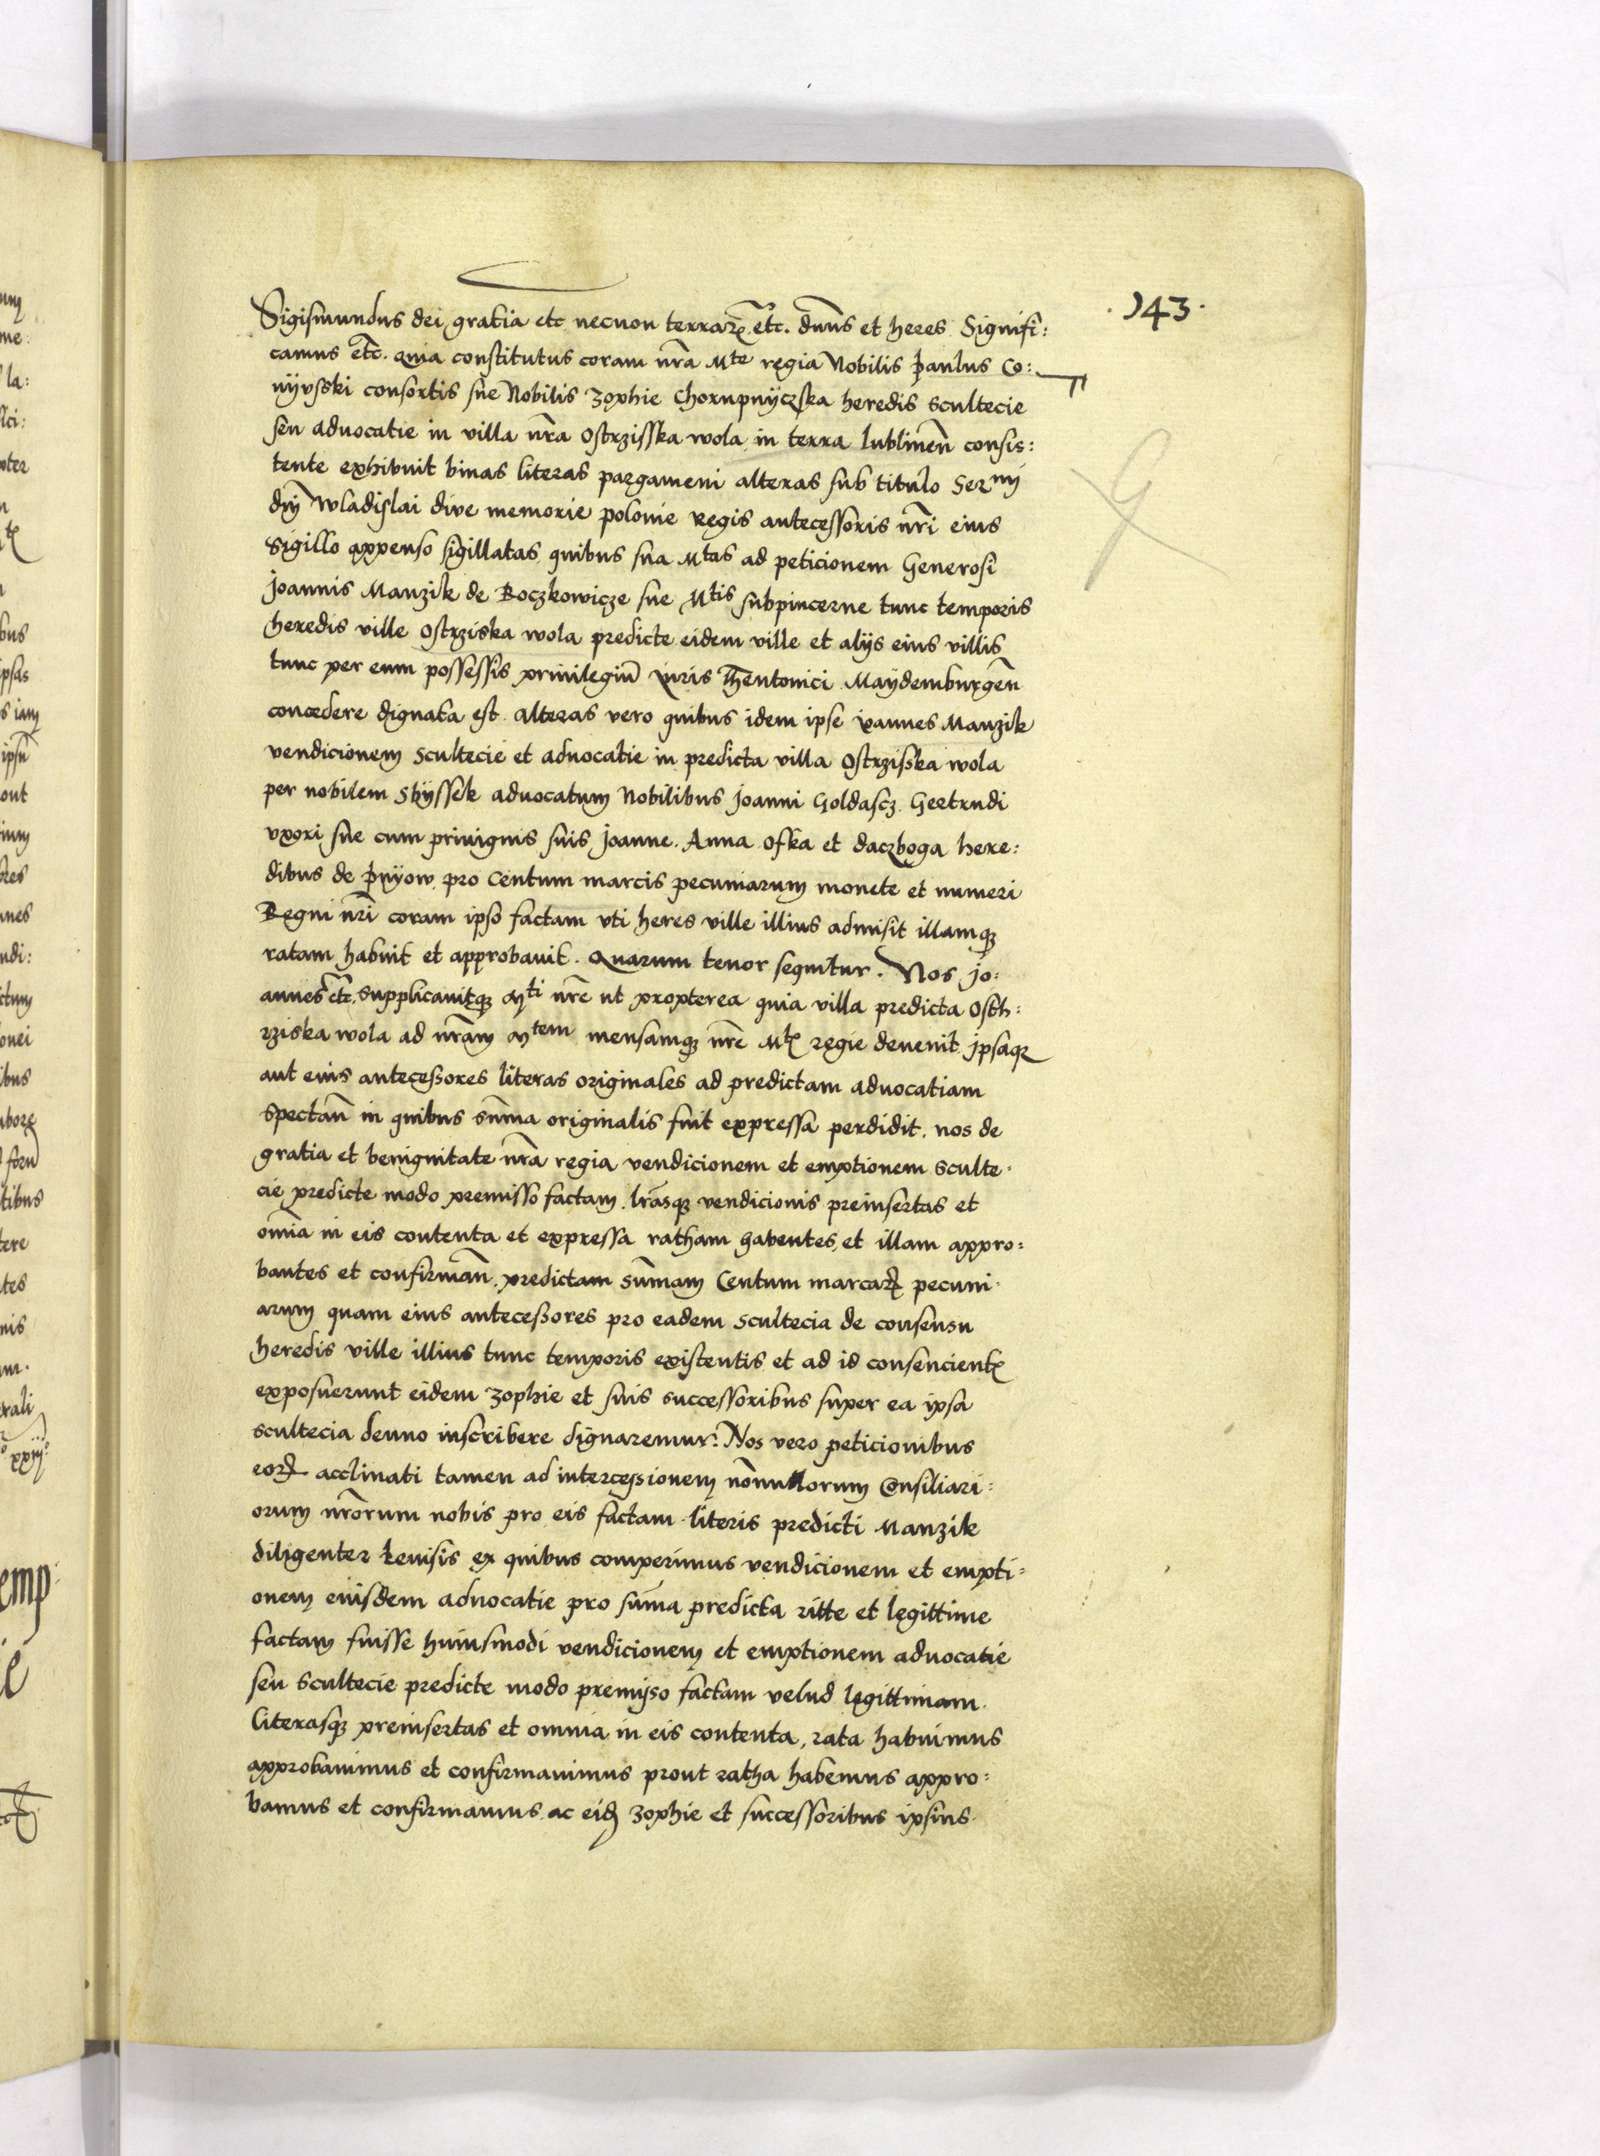 143.
Sigismundus dei gratia etc necnon terrarꝫ etc. dnus et heres Signifi:
camus etc. quia constitutus coram nrã Mte regia Nobilis paulus Co:
nÿvsski consortis sue Nobilis Zophie Chorupnÿczska heredis scultecie
seu aduocatie in villa nrã Ostrzisska wola in terra lublinen̄ consis:
tente exhibuit binas literas pargameni alteras sub titulo Sernij
dnj̄ Wladislai dive memorie polonie Regis antecessoris nrĩ eius
sigillo appenso sigillatas quibus sua Mtas ad peticionem Generosi
Joannis Manzik de Boczkowicze sue Mtis subpincerne tunc temporis
heredis ville Ostrziska wola predicte eidem ville et alijs eius villis
tunc per eum possessis priuilegiū iuris Theutonici Maÿdemburgen̄
concedere dignata est. alteras vero quibus idem ipse ioannes Manzik
vendicionem scultecie et aduocatie in predicta villa Ostrzisska wola
per nobilem Stÿssek aduocatum Nobilibus Joanni Goldascz Gertrudi
vxori sue cum priuignis suis Joanne. Anna Ofka et daczboga here:
dibus de pnÿow pro centum marcis pecuniarum monete et numeri
Regni nrĩ coram ipso factam vti heres ville illius admisit illamqꝫ
ratam habuit et approbauit. Quarum tenor sequitur. Nos Jo:
annes etc. supplicauitqꝫ Mti nrẽ ut propterea quia villa predicta Osth:
rziska wola ad nrãm Mtem mensamqꝫ nrẽ Mtꝭ regie deuenit ipsaqꝫ
aut eius antecessores literas originales ad predictam aduocatiam
spectan̄ in quibus sum̄a originalis fuit expressa perdidit. nos de
gratia et benignitate nrã regia vendicionem et emptionem sculte:
cie predicte modo premisso factam. lrãsqꝫ vendicionis preinsertas et
om̄ia in eis contenta et expressa ratham habentes, et illam appro:
bantes et confirman̄. predictam sum̄am Centum marcarꝫ pecuni:
arum quam eius antecessores pro eadem scultecia de consensu
heredis ville illius tunc temporis existentis et ad id consencientꝭ
exposuerunt eidem Zophie et suis successoribus super ea ipsa
scultecia denuo inscribere dignaremur. Nos vero peticionibus
eorꝫ acclinati tamen ad intercessionem nonnullorum Consiliari:
orum nrõrum nobis pro eis factam literis predicti Manzik
diligenter reuisis ex quibus comperimus vendicionem et empti:
onem eiusdem aduocatie pro sum̄a predicta ritte et legittime
factam fuisse huiusmodi vendicionem et emptionem aduocatie
seu scultecie predicte modo premisso factam velud legittimam.
literasqꝫ preinsertas et omnia in eis contenta, rata habuimus
approbauimus et confirmauimus prout ratha habemus appro:
bamus et confirmamus ac eidꝫ Zophie et successoribus ipsius